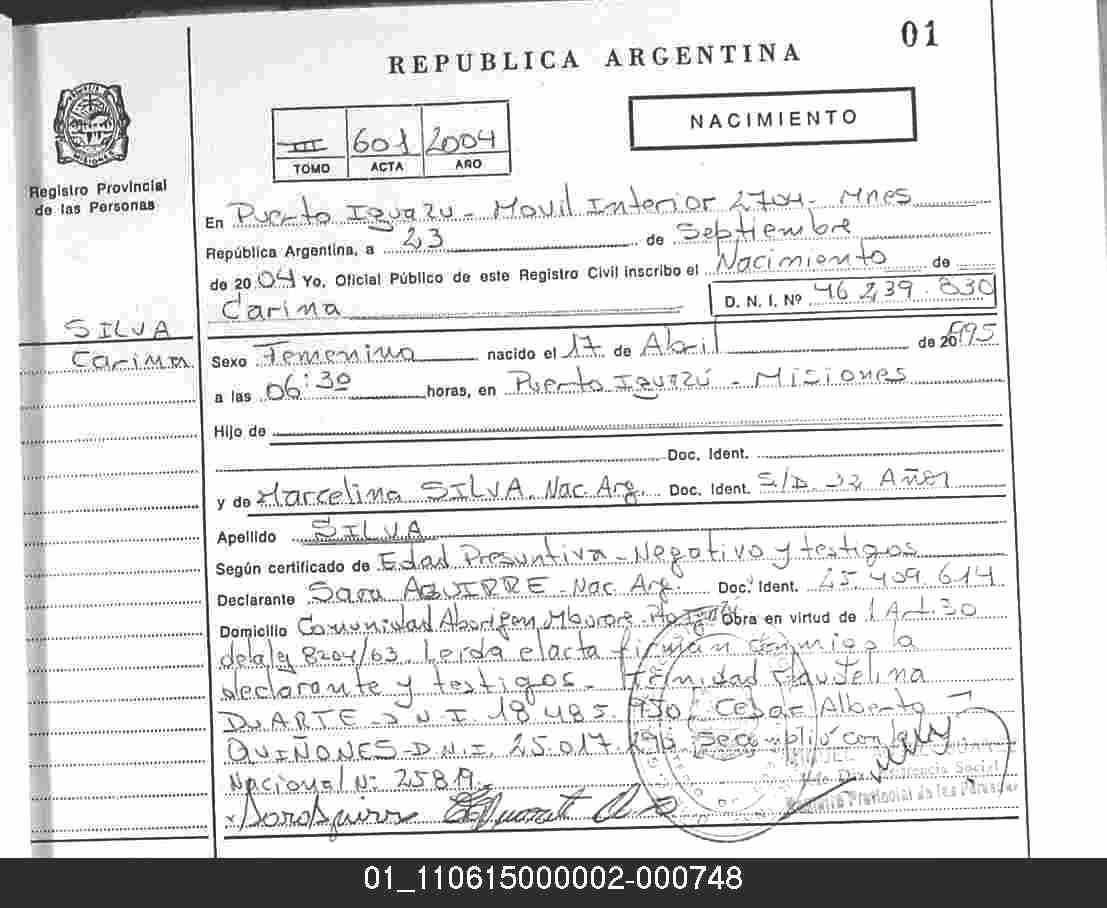 01
REPUBLICA ARGENTINA
III 601 2004
TOMO ACTA AÑO
NACIMIENTO
MISIONES
Registro Provincial
de las Personas
SILVA
Carina
En Puerto Iguazú - Movil Interior 2704 - Mnes
República Argentina, a 23 de Septiembre
de 2004 Yo, Oficial Público de este Registro Civil inscribo el Nacimiento de
Carina D. N. I. Nº 46 239.830
Sexo Femenino nacido el 17 de Abril de 20 1995
a las 06:30 horas, en Puerto Iguazú - Misiones
Hijo de
Doc. Ident.
y de Marcelina SILVA. Nac. Arg. Doc. Ident. S/D. 32 Años
Apellido SILVA
Según certificado de Edad Presuntiva - Negativo y testigos
Declarante Sara AGUIRRE - Nac. Arg. Doc. Ident. 25.409.614
Domicilio Comunidad Aborigen Mbororé Obra en virtud de l Art. 30
de la ley 8204/63. Leida el acta firman conmigo la
declarante y testigos. Trinidad Claudelina
DUARTE - D.N.I. 18.485.950, Cesar Alberto
QUIÑONES - D.N.I. 25.017.296. Se cumplió con ley
Nacional Nº 25819.
Registro Provincial de las Personas
01_110615000002-000748